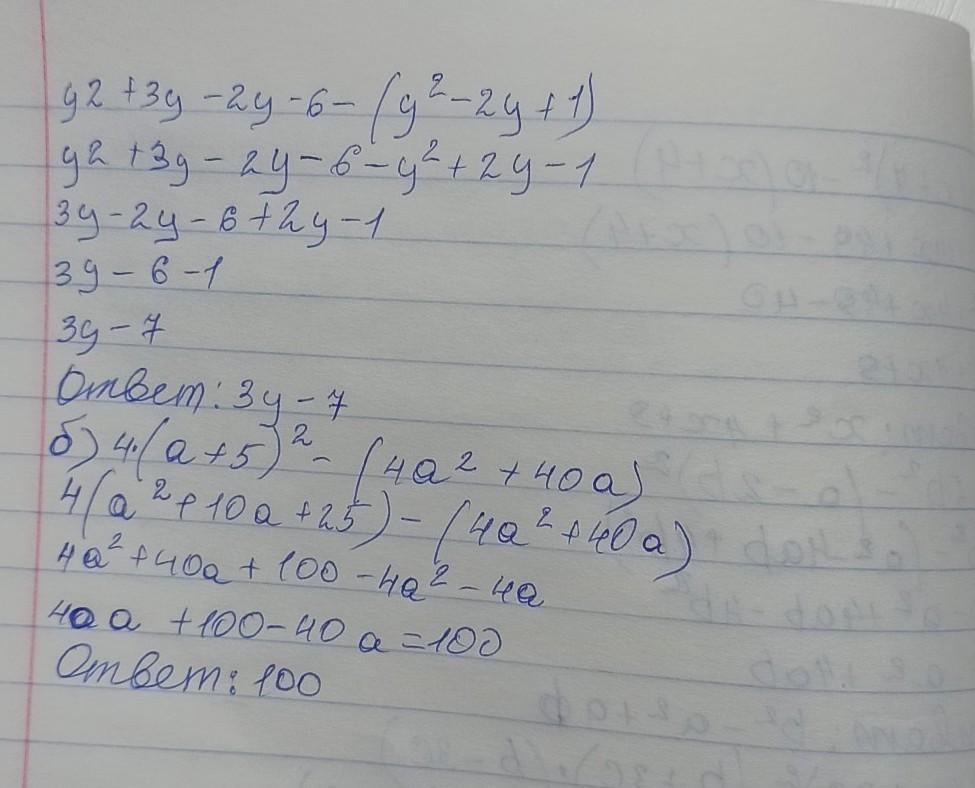 y2 + 3y - 2y - 6 - (y² - 2y + 1)
y2 + 3y - 2y - 6 - y² + 2y - 1
3y - 2y - 6 + 2y - 1
3y - 6 - 1
3y - 7
Ответ: 3y - 7
б) 4·(a + 5)² - (4a² + 40a)
4(a² + 10a + 25) - (4a² + 40a)
4a² + 40a + 100 - 4a² - 4a
40a + 100 - 40a = 100
Ответ: 100